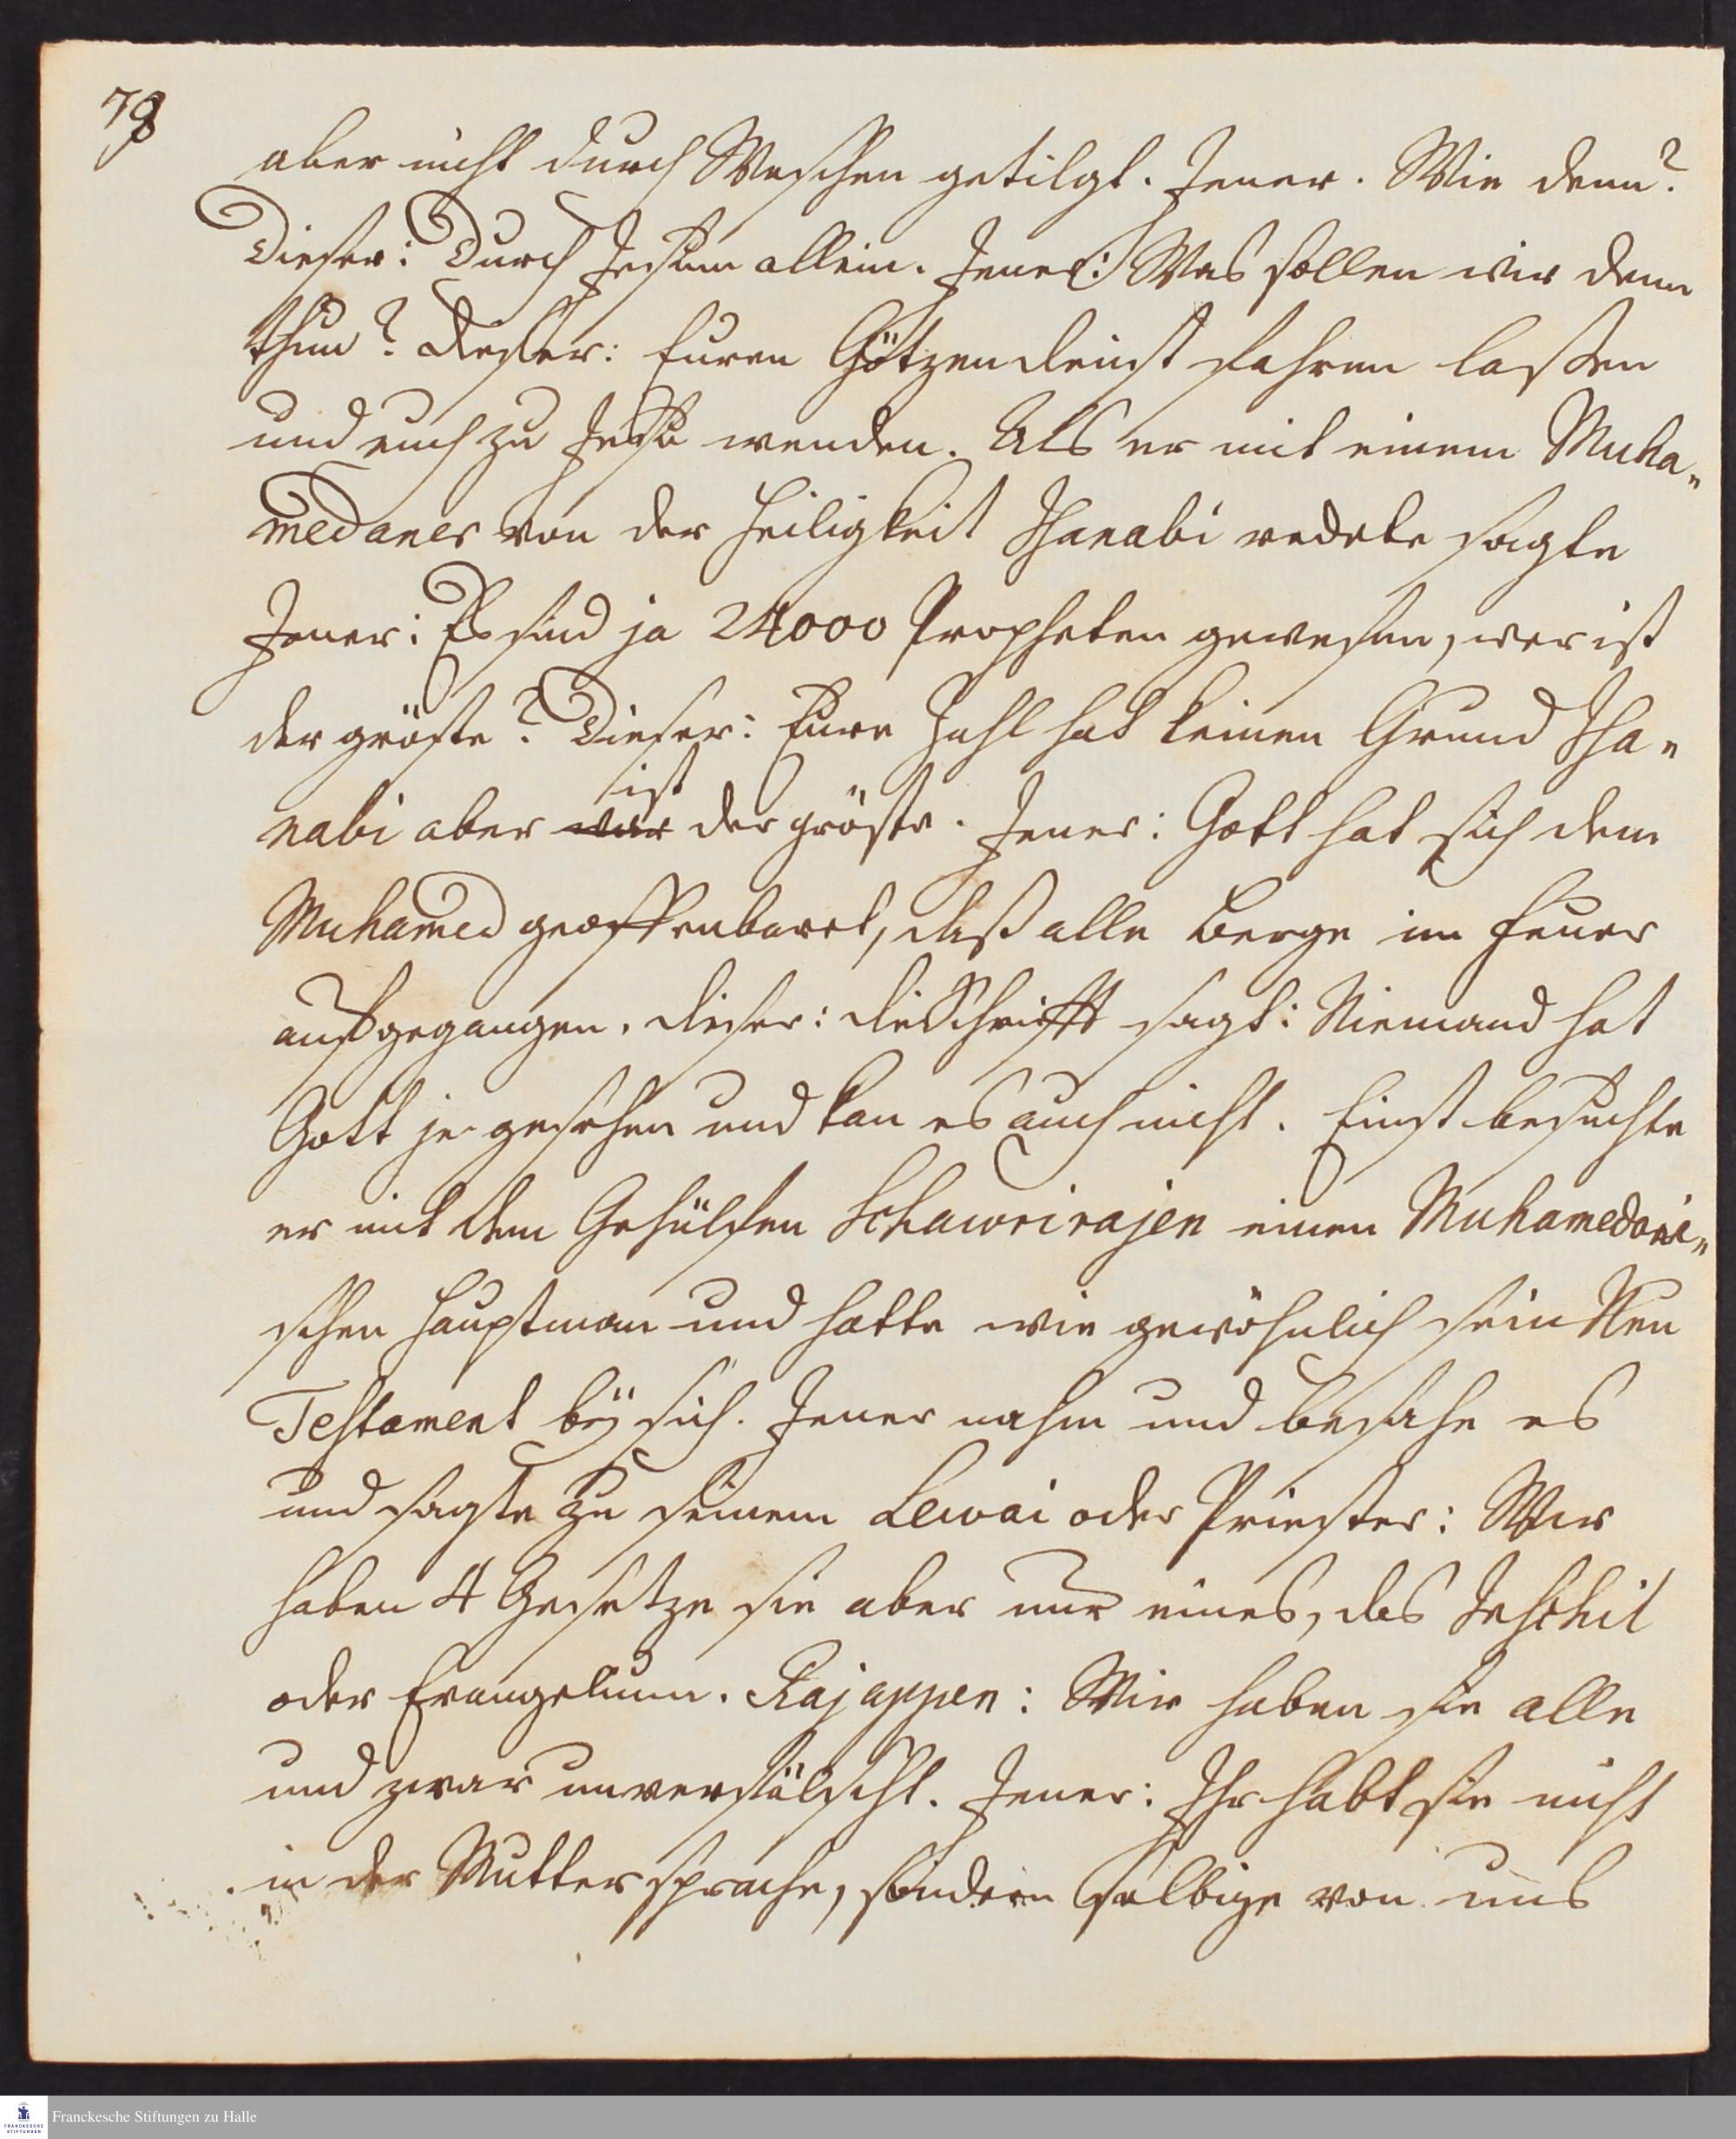 78
aber nicht durch Waschen getilgt. Jener. Wie denn?
Dieser: Durch Jesum allein. Jener: Was sollen wir denn
thun? Dieser: Euren Götzendienst fahren laßen
und euch zu Jesu wenden. Als er mit einem Muha„
medaner von der Heiligkeit Ihanabi redete sagte
Jener: Es sind ja 24000 Propheten gewesen, wer ist
der gröste? Dieser: Eure Zahl hat keinen Grund Iha„
ist
nabi aber war der gröste. Jener: Gott hat sich dem
Muhamed geoffenbaret, daß alle Berge im Feuer
aufgegangen. Dieser: die Schrifft sagt: Niemand hat
Gott je gesehen und kan es auch nicht. Einst besuchte
er mit dem Gehülfen Schawrirajen einen Muhamedani„
schen Hauptman und hatte wie gewöhnlich sein Neu
Testament bey sich. Jener nahm und besahe es
und sagte zu seinem Lewai oder Priester: Wir
haben 4 Gesetze sie aber nur eines, das Inschil
oder Evangelium. Rajappen: Wir haben sie alle
und zwar unverfälscht. Jener: Ihr habt sie nicht
in der Muttersprache, sondern selbige von uns
Franckesche Stiftungen zu Halle
FRANCKESCHE
STIFTUNGEN